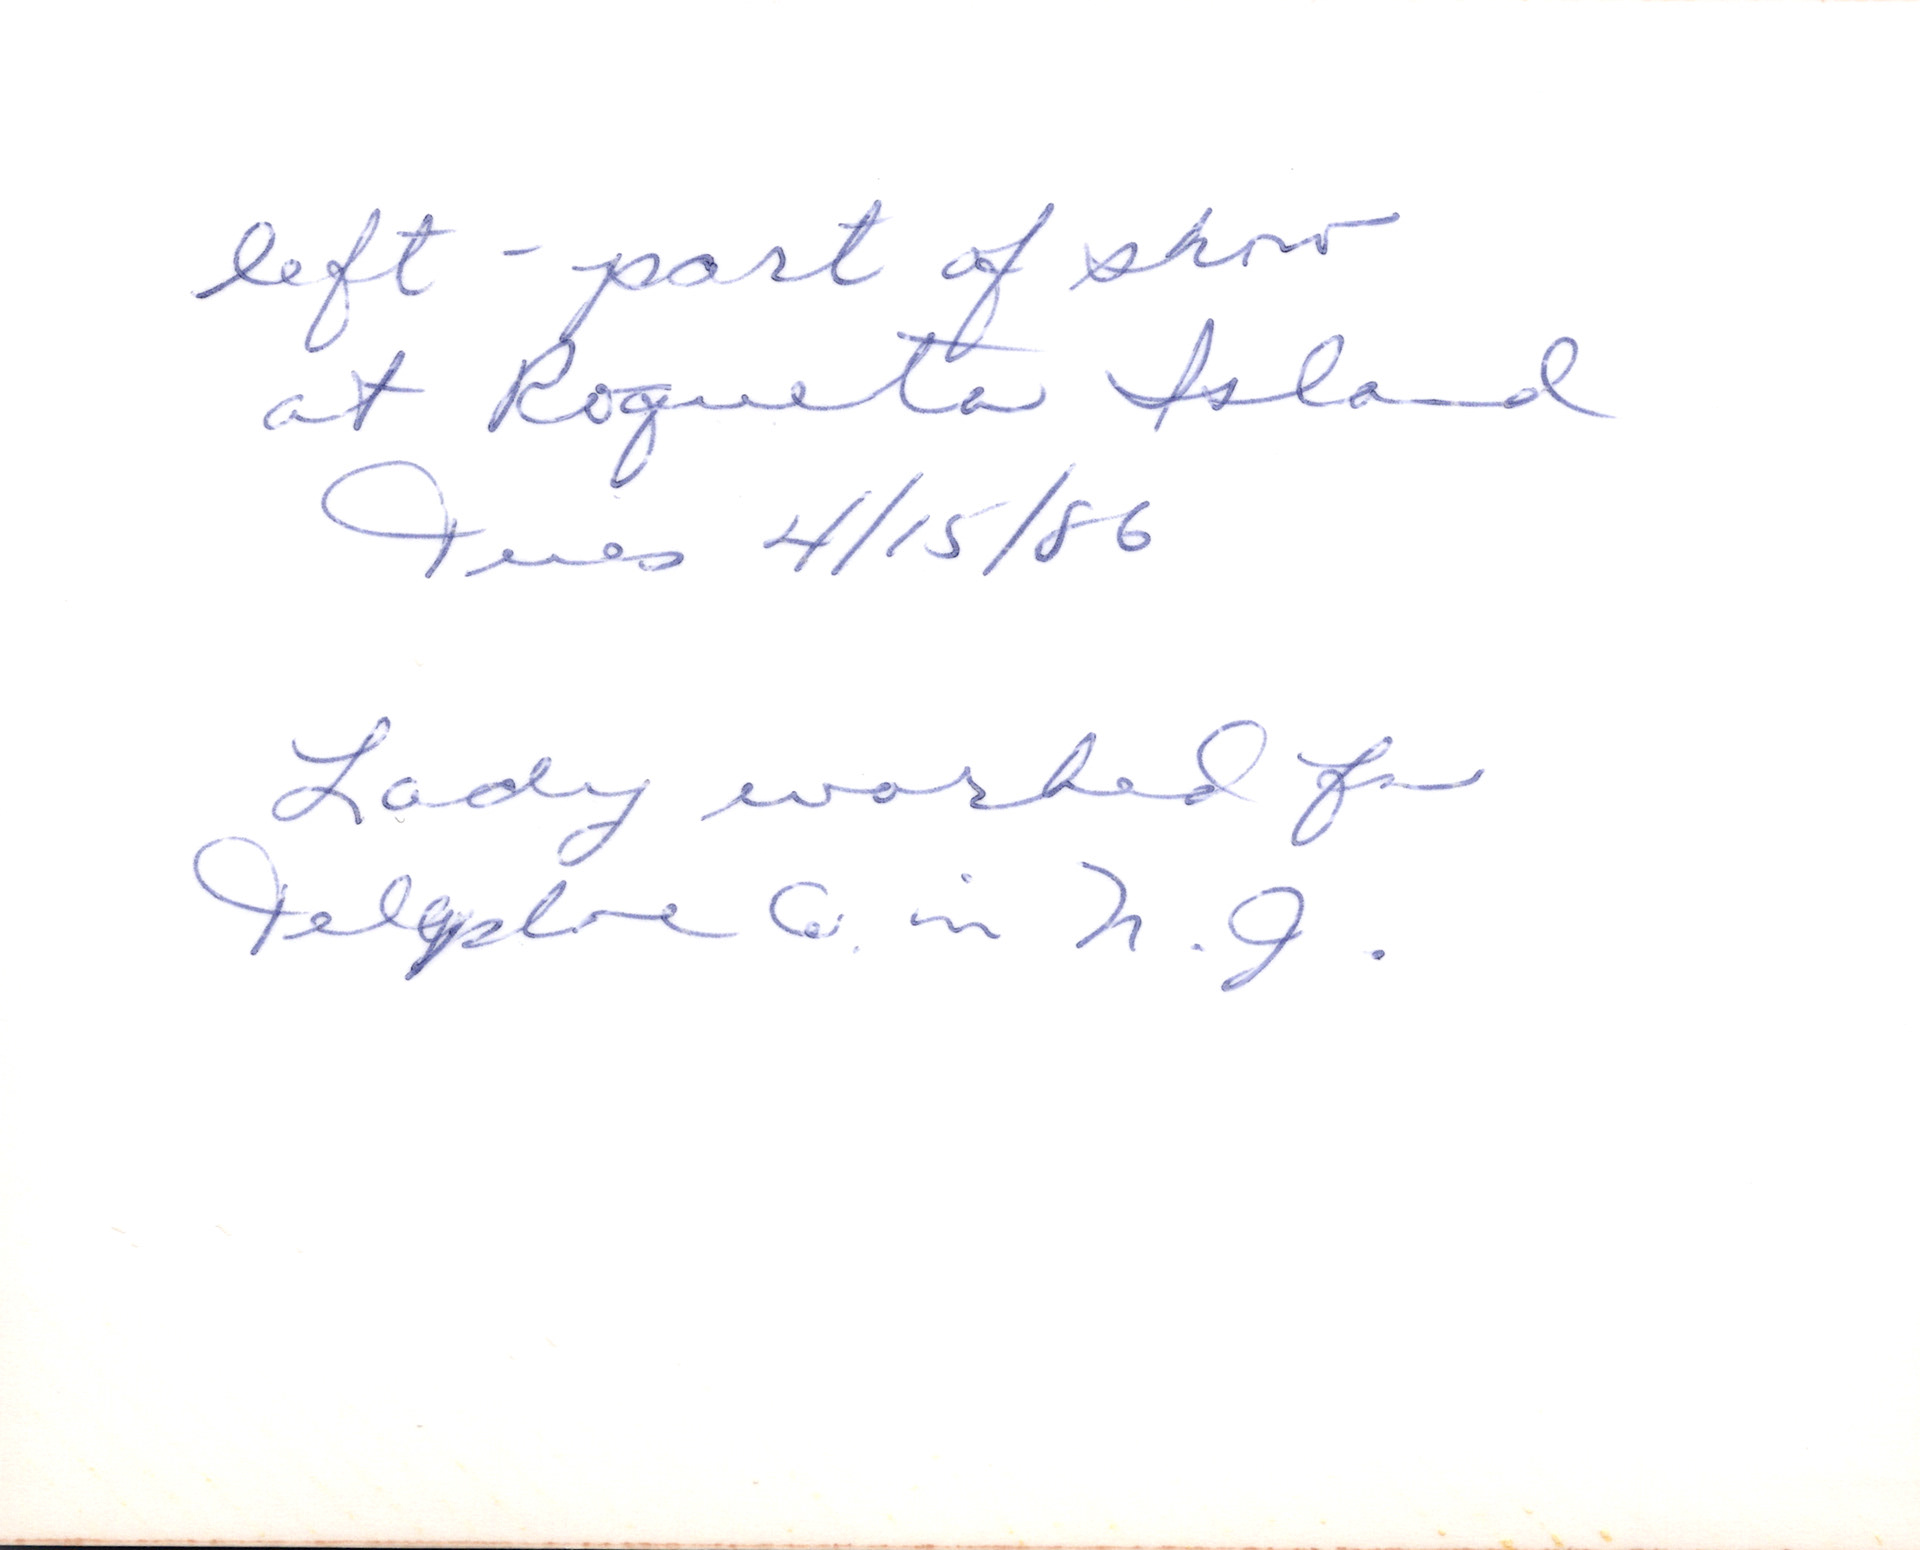 left - part of show
at Roqueta Island
Tues 4/15/86
Lady worked for
Telephone Co. in N.J.